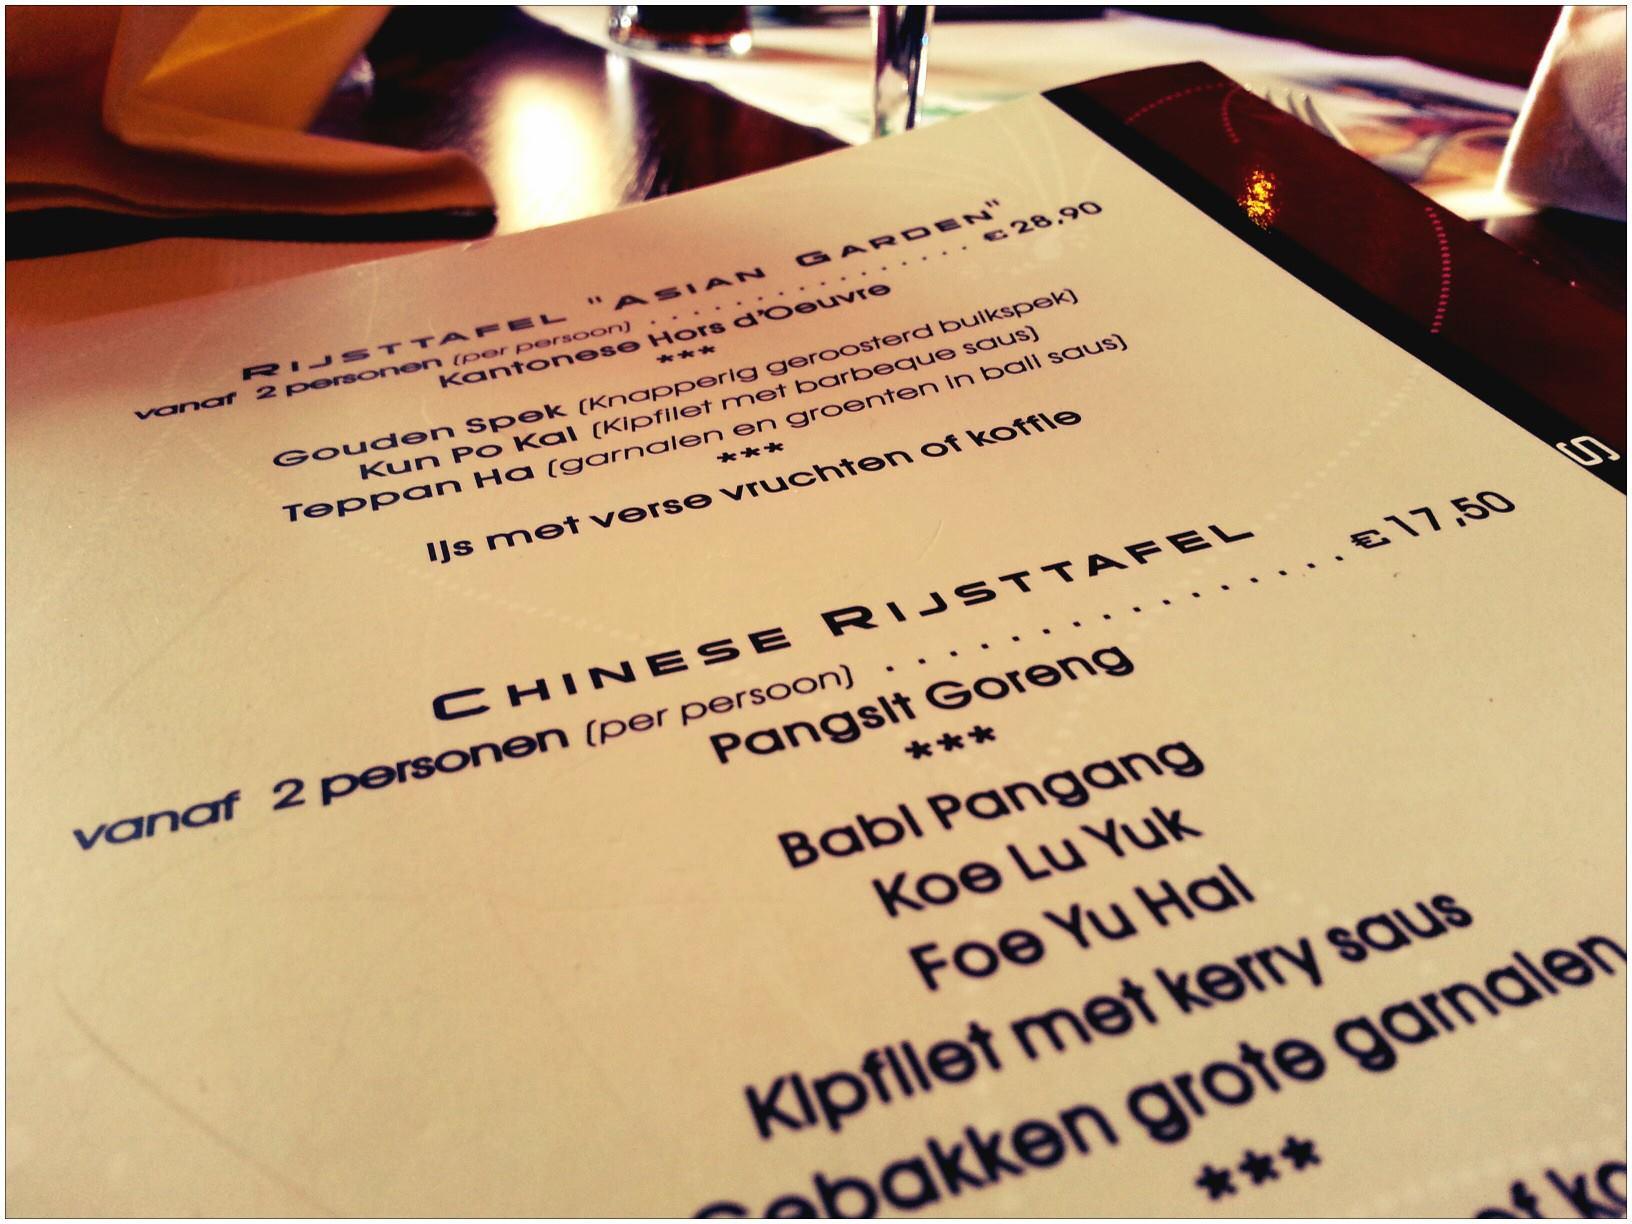 RIJSTTAFEL "ASIAN GARDEN"
vanaf 2 personen (per persoon) . . . . . . . . . . . . . . . . . € 28,90
Kantonese Hors d'Oeuvre
***
Gouden Spek (Knapperig geroosterd buikspek)
Kun Po Kai (Kipfilet met barbeque saus)
Teppan Ha (garnalen en groenten in bali saus)
***
IJs met verse vruchten of koffie
CHINESE RIJSTTAFEL
vanaf 2 personen (per persoon) . . . . . . . . . . . . . . . . . € 17,50
Pangsit Goreng
***
Babi Pangang
Koe Lu Yuk
Foe Yu Hai
Kipfilet met kerry saus
Gebakken grote garnalen
***
of
5